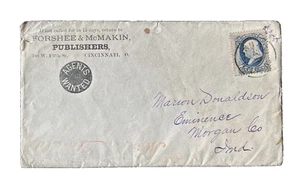 If not called for in 15 days, return to
FORSHEE & McMAKIN,
PUBLISHERS,
CINCINNATI, O.
AGENTS
WANTED
Marion Donaldson
Eminence
Morgan Co
Ind.